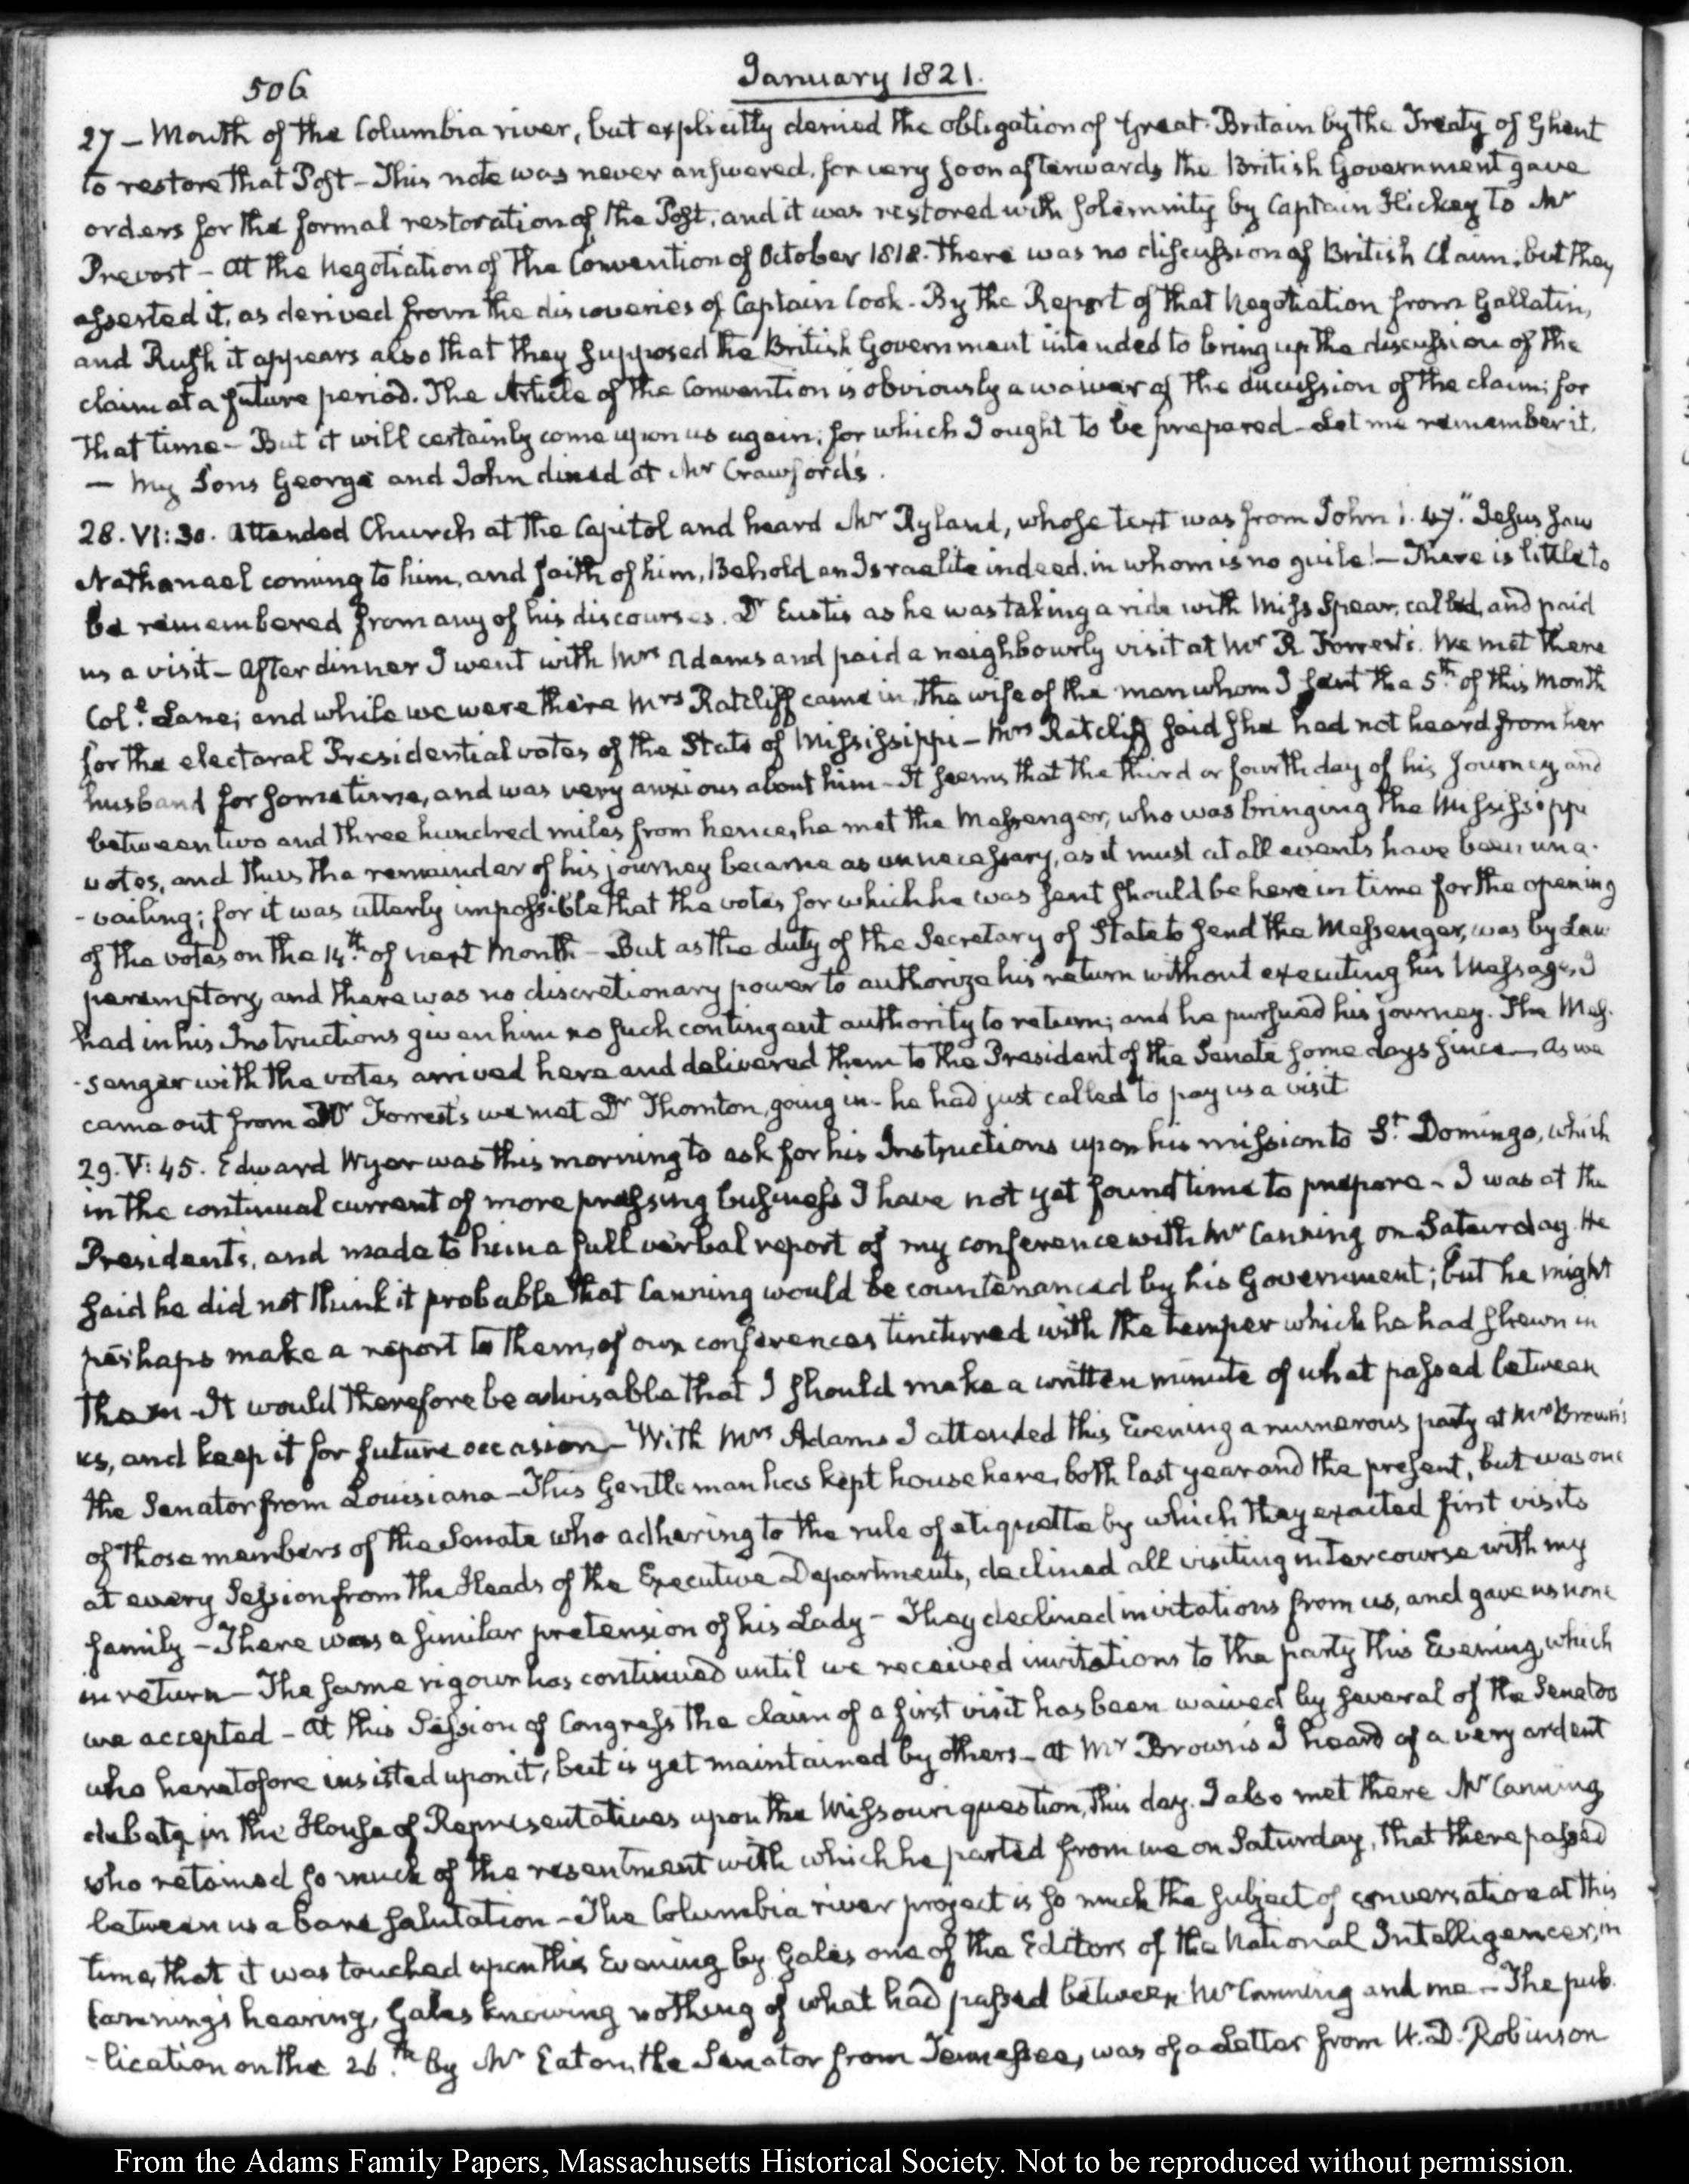 506
January 1821.
27 — Mouth of the Columbia river, but explicitly denied the obligation of Great-Britain by the Treaty of Ghent
to restore that Post — This note was never answered, for very soon afterwards the British Government gave
orders for the formal restoration of the Post, and it was restored with solemnity by Captain Hickey to Mr
Prevost — At the Negotiation of the Convention of October 1818. there was no discussion of British Claim; but they
asserted it, as derived from the discoveries of Captain Cook. By the Report of that Negotiation from Gallatin,
and Rush it appears also that they supposed the British Government intended to bring up the discussion of the
claim at a future period. The Article of the Convention is obviously a waiver of the discussion of the claim; for
that time — But it will certainly come upon us again; for which I ought to be prepared — Let me remember it.
— My Sons George and John dined at Mr Crawford's.
28. VI: 30. Attended Church at the Capitol and heard Mr Ryland, whose text was from John 1. 47. "Jesus saw
Nathanael coming to him, and saith of him, Behold an Israelite indeed, in whom is no guile! — There is little to
be remembered from any of his discourses. Dr Eustis as he was taking a ride with Miss Spear, called, and paid
us a visit — After dinner I went with Mrs Adams and paid a neighbourly visit at Mr R. Forrest's. We met there
Coll. Lane; and while we were there Mrs Ratcliff came in, the wife of the man whom I sent the 5th of this month
for the electoral Presidential votes of the State of Mississippi — Mrs Ratcliff said she had not heard from her
husband for sometime, and was very anxious about him — It seems that the third or fourth day of his journey and
between two and three hundred miles from hence, he met the Messenger, who was bringing the Mississippi
votes, and thus the remainder of his journey became as unnecessary, as it must at all events have been una-
-vailing; for it was utterly impossible that the votes for which he was sent should be here in time for the opening
of the votes on the 14th of next month — But as the duty of the Secretary of State to send the Messenger, was by Law
peremptory, and there was no discretionary power to authorize his return without executing his Message, I
had in his Instructions given him no such contingent authority to return; and he pursued his journey. The Mes-
-senger with the votes arrived here and delivered them to the President of the Senate some days since — As we
came out from Mr Forrest's we met Dr Thornton, going in — he had just called to pay us a visit
29. V: 45. Edward Wyer was this morning to ask for his Instructions upon his mission to St. Domingo, which
in the continual current of more pressing business I have not yet found time to prepare — I was at the
President's, and made to him a full verbal report of my conference with Mr Canning on Saturday. He
said he did not think it probable that Canning would be countenanced by his Government; but he might
perhaps make a report to them, of our conferences tinctured with the temper which he had shewn in
them — It would therefore be advisable that I should make a written minute of what passed between
us, and keep it for future occasion — With Mrs Adams I attended this Evening a numerous party at Mr Brown's
the Senator from Louisiana — This Gentleman has kept house here, both last year and the present, but was one
of those members of the Senate who adhering to the rule of etiquette by which they exacted first visits
at every Session from the Heads of the Executive Departments, declined all visiting intercourse with my
family — There was a similar pretension of his Lady — They declined invitations from us, and gave us none
in return — The same rigour has continued until we received invitations to the party this Evening, which
we accepted — At this Session of Congress the claim of a first visit has been waived by several of the Senators
who heretofore insisted upon it, but is yet maintained by others — At Mr Brown's I heard of a very ardent
debate in the House of Representatives upon the Missouri question, this day. I also met there Mr Canning
who retained so much of the resentment with which he parted from me on Saturday, that there passed
between us a bare salutation — The Columbia river project is so much the subject of conversation at this
time, that it was touched upon this Evening by Gales one of the Editors of the National Intelligencer, in
Canning's hearing, Gales knowing nothing of what had passed between Mr Canning and me — The pub-
-lication on the 26th by Mr Eaton, the Senator from Tennessee, was of a Letter from W. D. Robinson
From the Adams Family Papers, Massachusetts Historical Society. Not to be reproduced without permission.